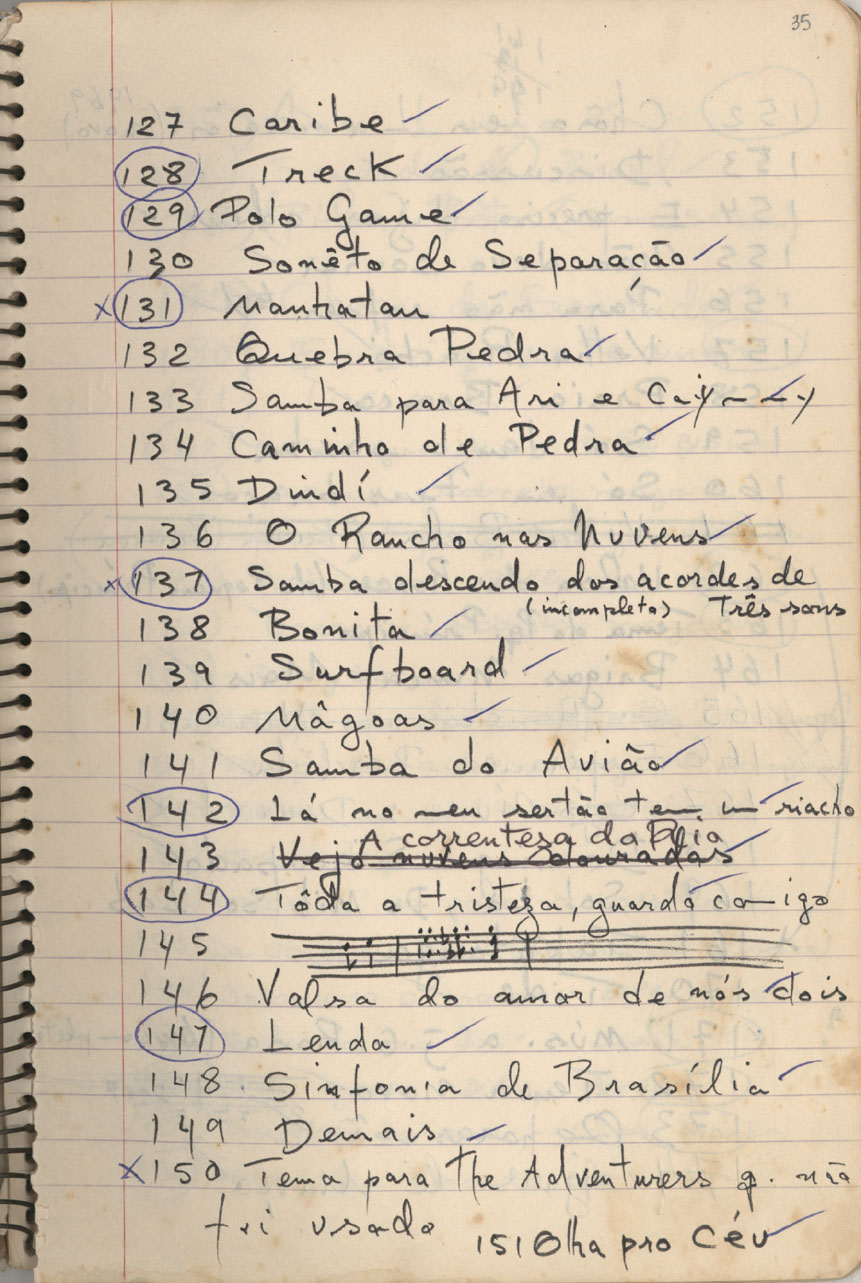 35
127 Caribe
128 Treck
129 Polo Game
130 Sonêto de Separação
131 Manhatan
132 Quebra Pedra
133 Samba para Ari e
134 Caminho de Pedra
135 Dindí
136 O Rancho nas Nuvens
137 Samba descendo dos acordes de
(incompleto) Três sons
138 Bonita
139 Surfboard
140 Mágoas
141 Samba do Avião
142 Lá no meu sertão tem um riacho
A correntesa da
143 Vejo nuvens douradas
144 Tôda a tristeza, guardo comigo
145
146 Valsa do amor de nós dois
147 Lenda
148. Sinfonia de Brasília
149 Demais
x150 Tema para The Adventurers q. não
foi usado
151 Olha pro Céu